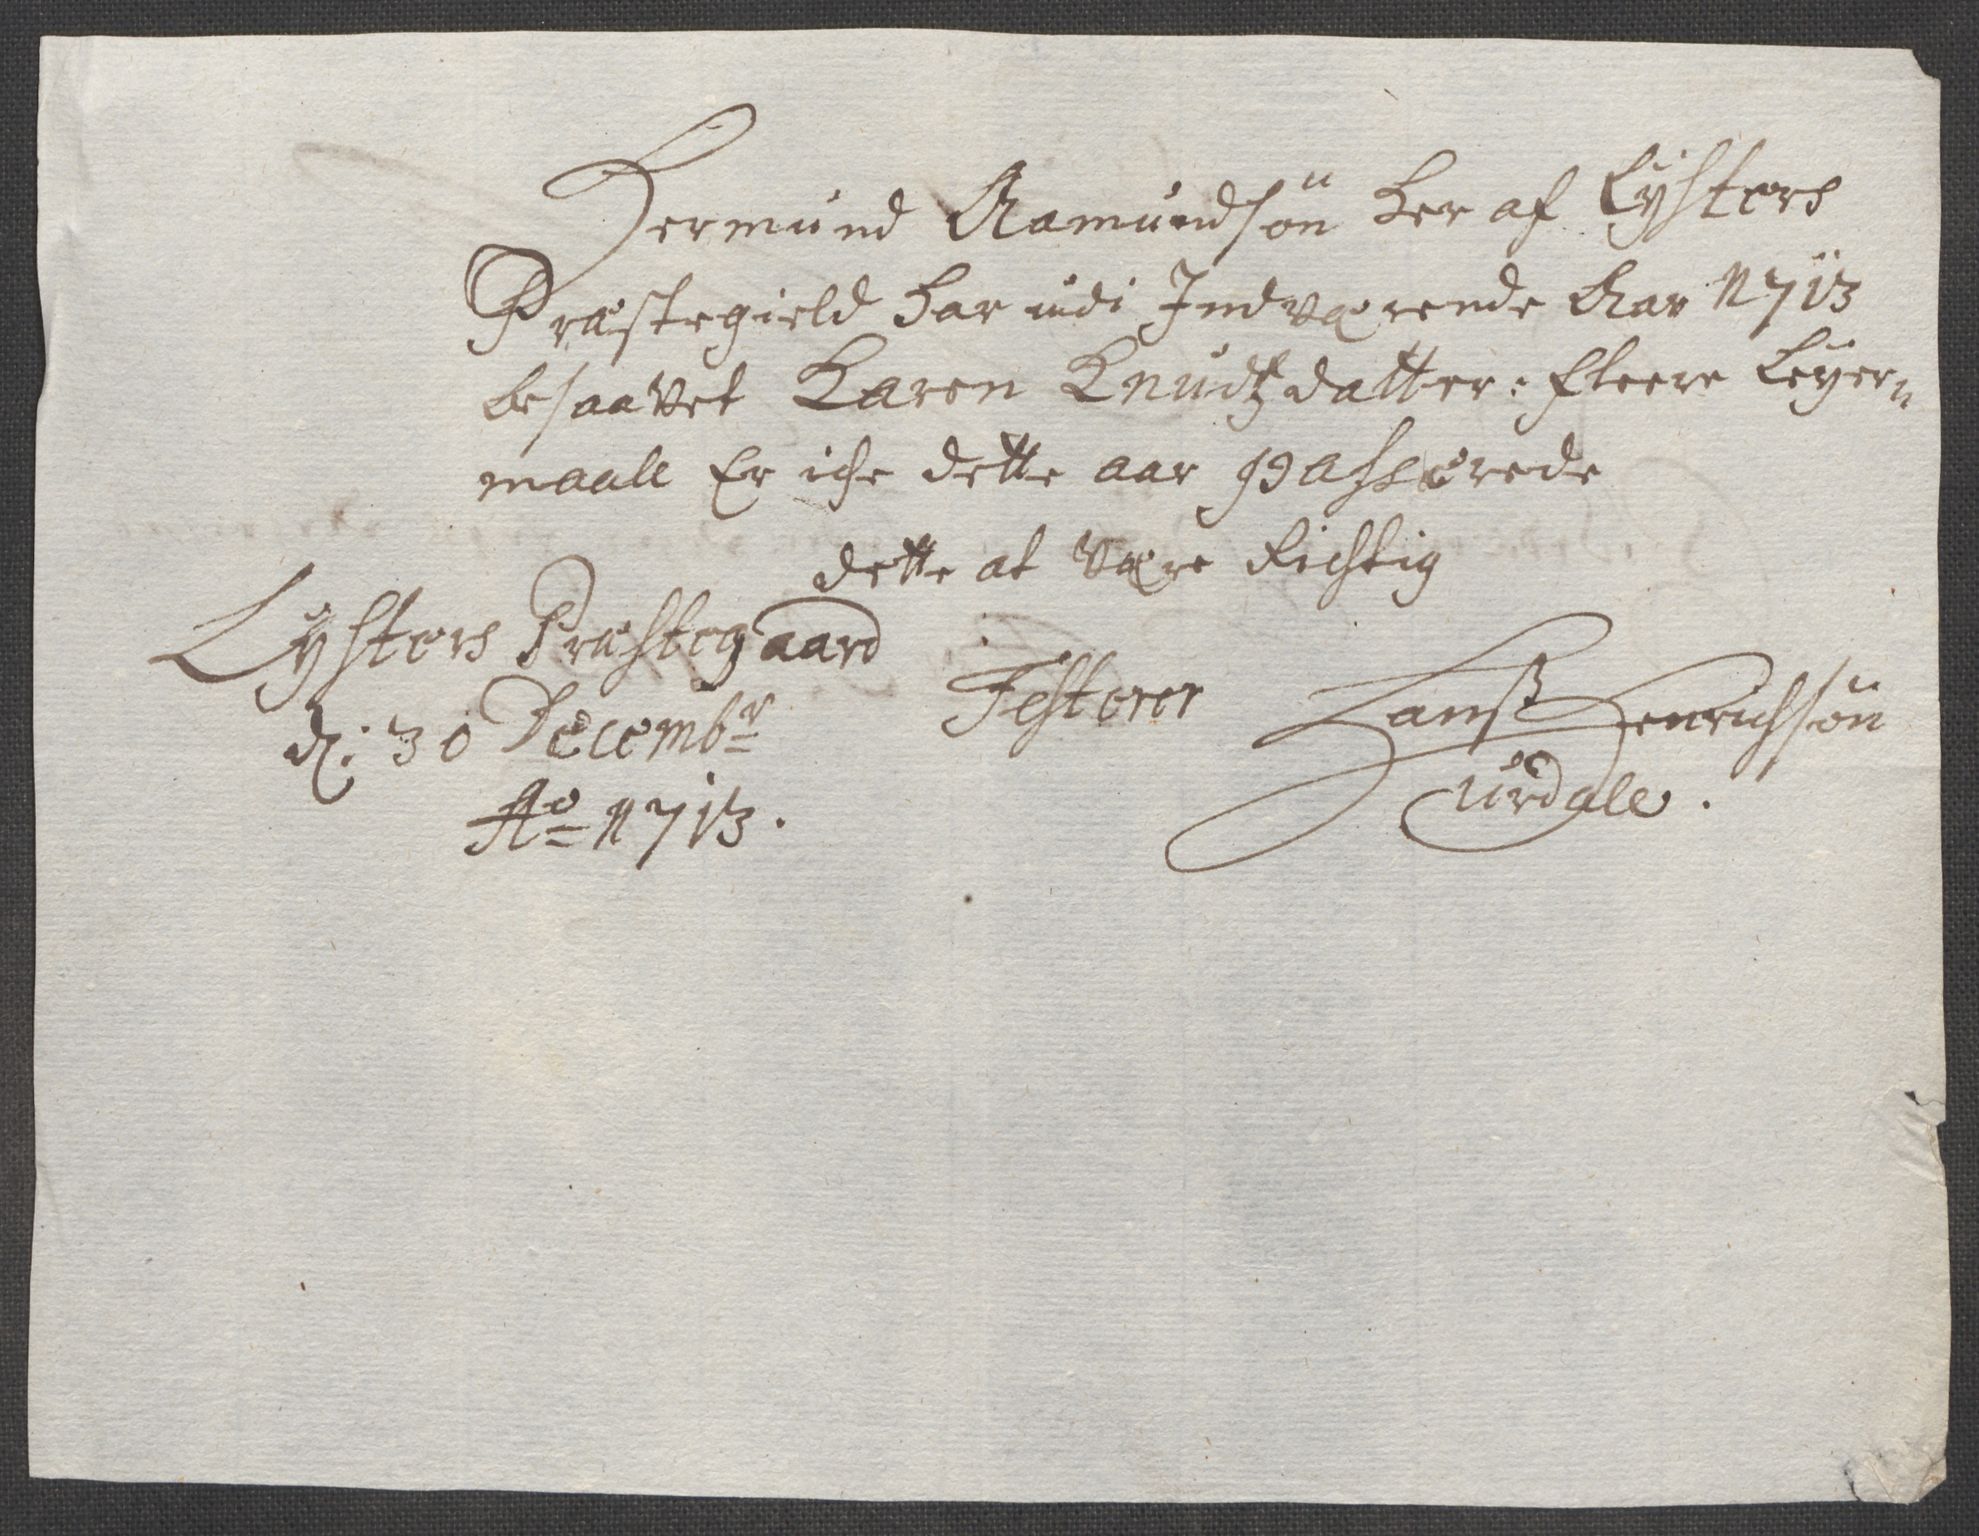 Hermund Aamundsön her af Lysters
Præstegield har udi Indværende Aar 1713
besaavet Karen Knudtzdatter: fleere Leyer-
maall Er iche dette aar passerede
dette at være Richtig
Lysters Præstegaard
d: 30 Decembr
Ao 1713.
Testerer
Hanß Henrichsön
Urdall.